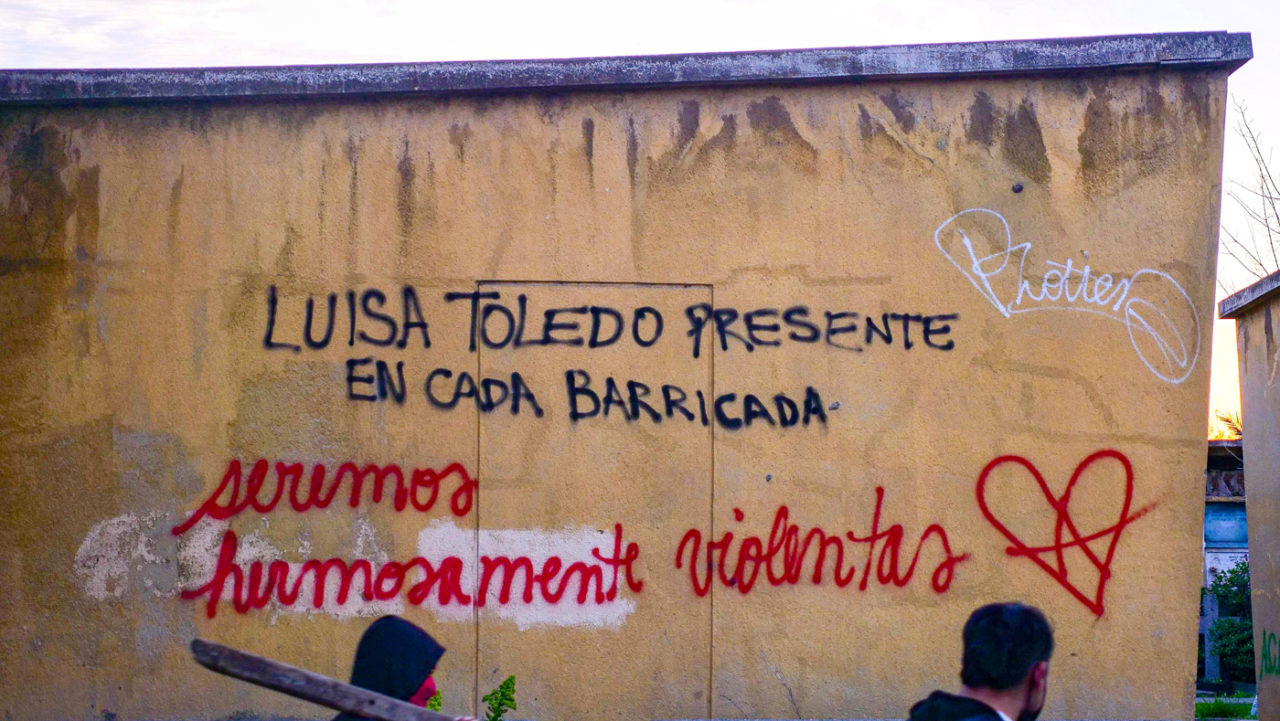 LUISA TOLEDO PRESENTE
EN CADA BARRICADA
seremos
hermosamente violentas